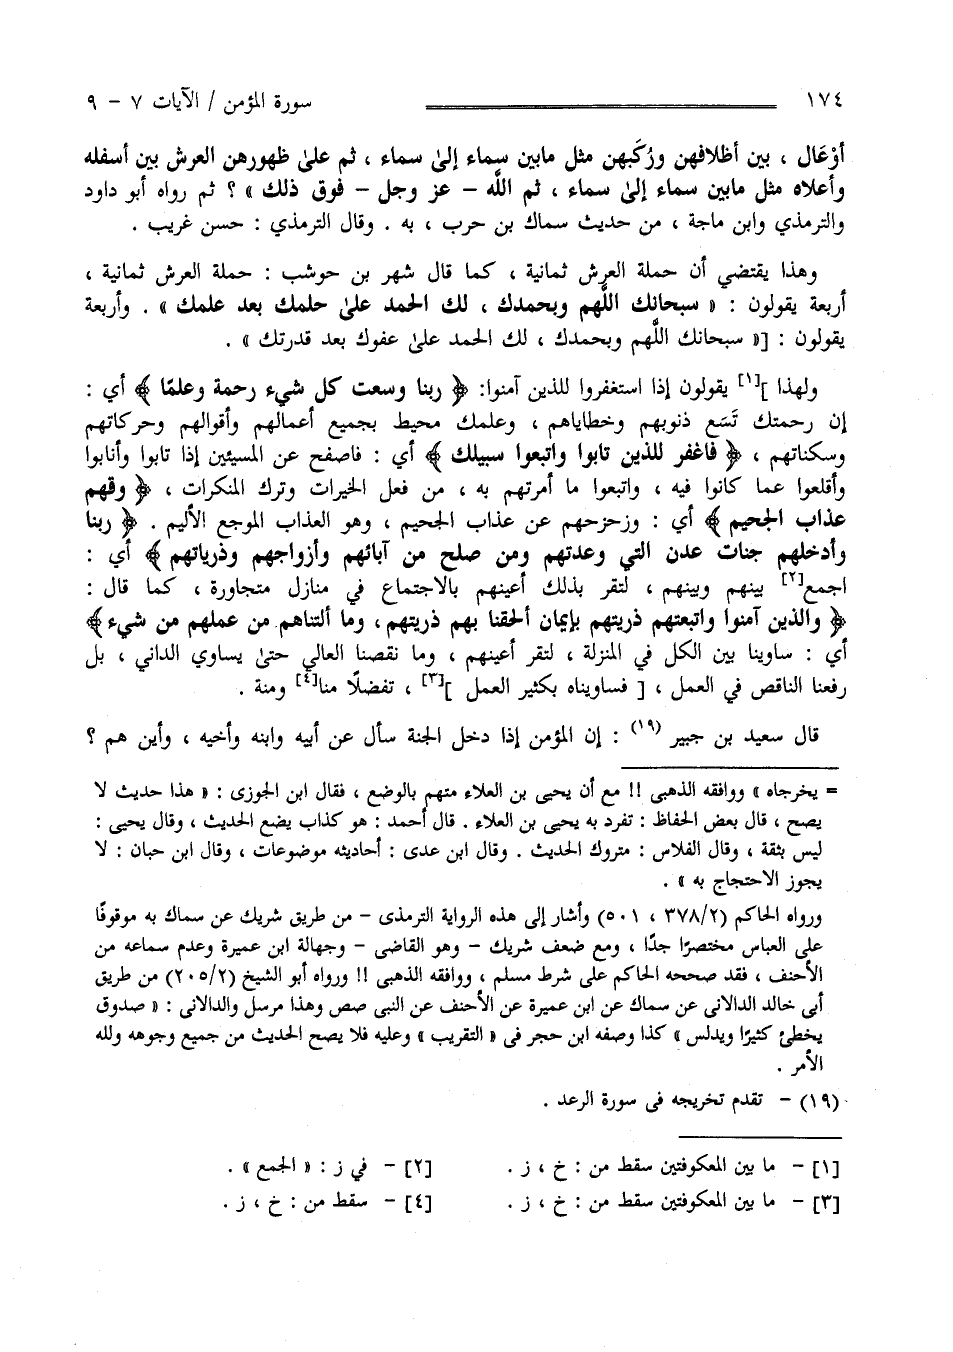 ١٧٤ سورة المؤمن / الآيات ٧ - ٩
أوْعَال ، بين أظلافهن ورُكَبهن مثل مابين سماء إلىٰ سماء ، ثم علىٰ ظهورهن العرش بين أسفله
وأعلاه مثل مابين سماء إلىٰ سماء ، ثم اللَّه - عز وجل - فوق ذلك » ؟ ثم رواه أبو داود
والترمذي وابن ماجة ، من حديث سماك بن حرب ، به . وقال الترمذي : حسن غريب .
وهذا يقتضي أن حملة العرش ثمانية ، كما قال شهر بن حوشب : حملة العرش ثمانية ،
أربعة يقولون : « سبحانك اللَّهم وبحمدك ، لك الحمد علىٰ حلمك بعد علمك » . وأربعة
يقولون : [« سبحانك اللَّهم وبحمدك ، لك الحمد علىٰ عفوك بعد قدرتك » .
ولهذا ][١] يقولون إذا استغفروا للذين آمنوا: ﴿ ربنا وسعت كل شيء رحمة وعلمًا ﴾ أي :
إن رحمتك تَسَع ذنوبهم وخطاياهم ، وعلمك محيط بجميع أعمالهم وأقوالهم وحركاتهم
وسكناتهم ، ﴿ فاغفر للذين تابوا واتبعوا سبيلك ﴾ أي : فاصفح عن المسيئين إذا تابوا وأنابوا
وأقلعوا عما كانوا فيه ، واتبعوا ما أمرتهم به ، من فعل الخيرات وترك المنكرات ، ﴿ وقهم
عذاب الجحيم ﴾ أي : وزحزحهم عن عذاب الجحيم ، وهو العذاب الموجع الأليم . ﴿ ربنا
وأدخلهم جنات عدن التي وعدتهم ومن صلح من آبائهم وأزواجهم وذرياتهم ﴾ أي :
اجمع[٢] بينهم وبينهم ، لتقر بذلك أعينهم بالاجتماع في منازل متجاورة ، كما قال :
﴿ والذين آمنوا واتبعتهم ذريتهم بإيمان ألحقنا بهم ذريتهم، وما ألتناهم من عملهم من شيء ﴾
أي : ساوينا بين الكل في المنزلة ، لتقر أعينهم ، وما نقصنا العالي حتىٰ يساوي الداني ، بل
رفعنا الناقص في العمل ، [ فساويناه بكثير العمل ][٣] ، تفضلًا منا[٤] ومنة .
قال سعيد بن جبير (١٩) : إن المؤمن إذا دخل الجنة سأل عن أبيه وابنه وأخيه ، وأين هم ؟
= يخرجاه » ووافقه الذهبى !! مع أن يحيى بن العلاء متهم بالوضع ، فقال ابن الجوزى : « هذا حديث لا
يصح ، قال بعض الحفاظ : تفرد به يحيى بن العلاء . قال أحمد : هو كذاب يضع الحديث ، وقال يحيى :
ليس بثقة ، وقال الفلاس : متروك الحديث . وقال ابن عدى : أحاديثه موضوعات ، وقال ابن حبان : لا
يجوز الاحتجاج به » .
ورواه الحاكم (٣٧٨/٢ ، ٥٠١) وأشار إلى هذه الرواية الترمذى - من طريق شريك عن سماك به موقوفًا
على العباس مختصرًا جدًّا ، ومع ضعف شريك - وهو القاضى - وجهالة ابن عميرة وعدم سماعه من
الأحنف ، فقد صححه الحاكم على شرط مسلم ، ووافقه الذهبى !! ورواه أبو الشيخ (٢٠٥/٢) من طريق
أبى خالد الدالانى عن سماك عن ابن عميرة عن الأحنف عن النبى صص وهذا مرسل والدالانى : « صدوق
يخطئ كثيرًا ويدلس » كذا وصفه ابن حجر فى « التقريب » وعليه فلا يصح الحديث من جميع وجوهه ولله
الأمر .
(١٩) - تقدم تخريجه فى سورة الرعد .
[١] - ما بين المعكوفتين سقط من : خ ، ز . [٢] - في ز : « الجمع » .
[٣] - ما بين المعكوفتين سقط من : خ ، ز . [٤] - سقط من : خ ، ز .